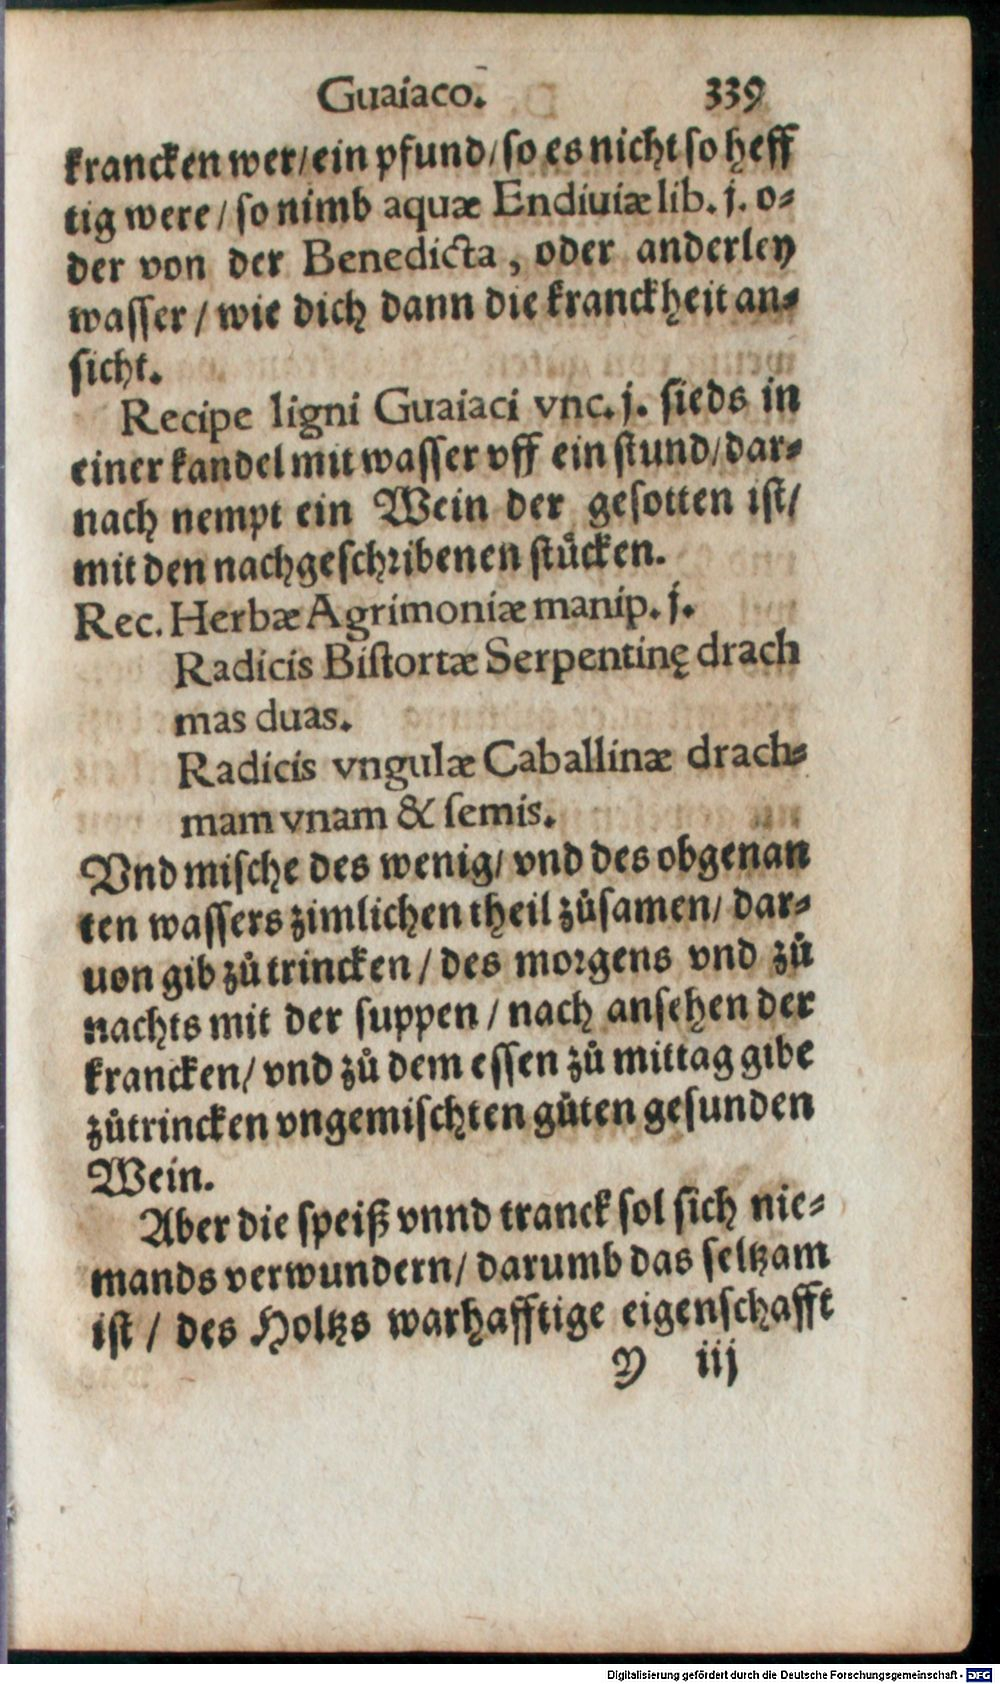 Guaiaco. 339
krancken wer/ein pfund/so es nicht so heff
tig were/so nimb aquæ Endiuiæ lib. j. o-
der von der Benedicta, oder anderley
wasser/wie dich dann die kranckheit an-
sicht.
Recipe ligni Guaiaci vnc. j. sieds in
einer kandel mit wasser vff ein stund/dar-
nach nempt ein Wein der gesotten ist/
mit den nachgeschribenen stücken.
Rec. Herbæ Agrimoniæ manip. j.
Radicis Bistortæ Serpentinę drach
mas duas.
Radicis vngulæ Caballinæ drach-
mam vnam & semis.
Vnd mische des wenig/vnd des obgenan
ten wassers zimlichen theil zůsamen/dar-
uon gib zů trincken/des morgens vnd zů
nachts mit der suppen/nach ansehen der
krancken/vnd zů dem essen zů mittag gibe
zůtrincken vngemischten gůten gesunden
Wein.
Aber die speiß vnnd tranck sol sich nie-
mands verwundern/darumb das seltzam
ist/des Holtzs warhafftige eigenschafft
Y iij
Digitalisierung gefördert durch die Deutsche Forschungsgemeinschaft - DFG